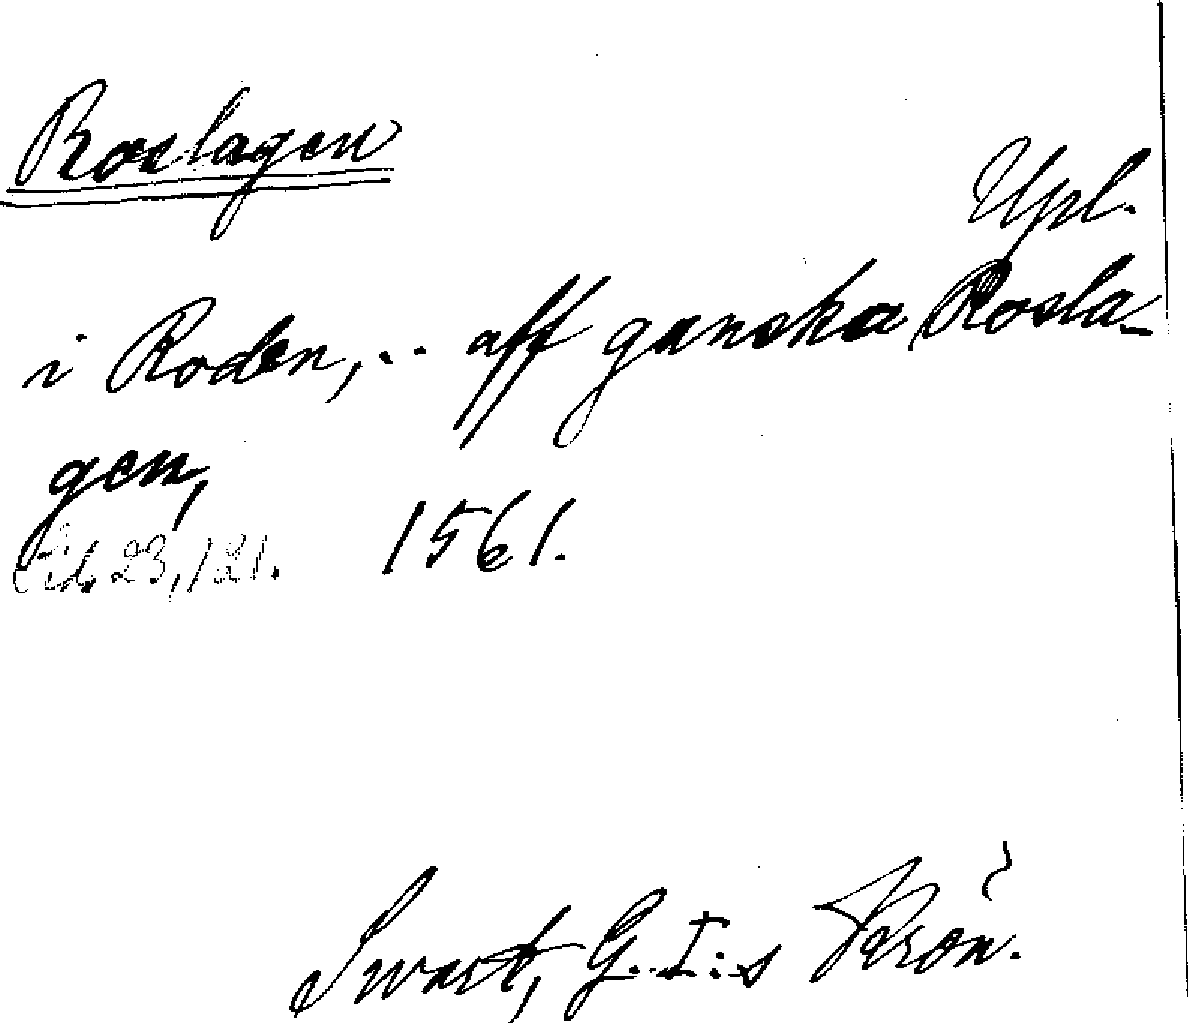 Roslagen
Upl.
i Roden, .. aff ganska Rosla-
gen,
Ed. 23, 121. 1561.
Swart, G. I:s Krön.